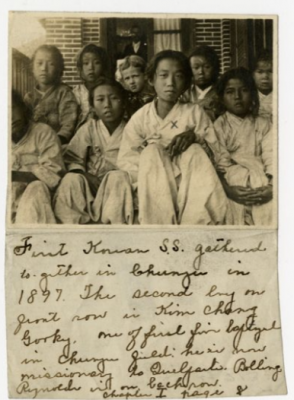 First Korean S.S. gathered
to-gether in Chunju in
1897. The second boy on
front row is Kim Chang
Gooky. one of first five baptized
in Chunju field: he is now
missionary to Quelpart. Bolling
Reynolds is on back row.
chapter I page 8